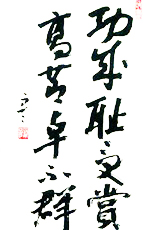 功成耻受賞
高节卓不群